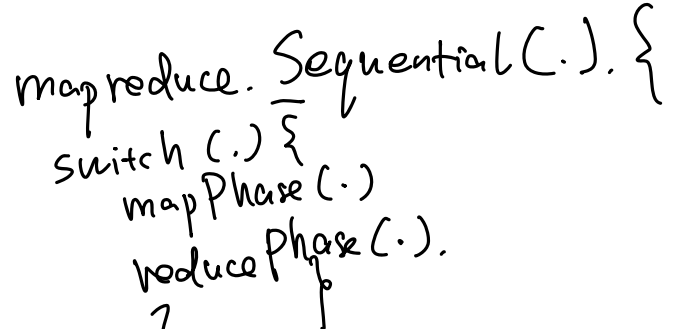 mapreduce. Sequential(.). {
switch (.) {
mapPhase(.)
reducePhase(.).
}